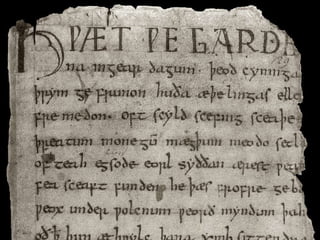 HǷÆT ǷE GARDE
na ingear dagum · þeod cyninga
þrym ge frunon huða æþelingas elle
fre medon · oft scyld scefing sceaþe
þreatum monegū mægþum meodo setl
of teah egsode eorl syððan ærest
fea sceaft funden he þæs frofre ge ba
ƿeox under ƿolcnum ƿeorð myndum þah
him æghƿylc þara ymb sittend